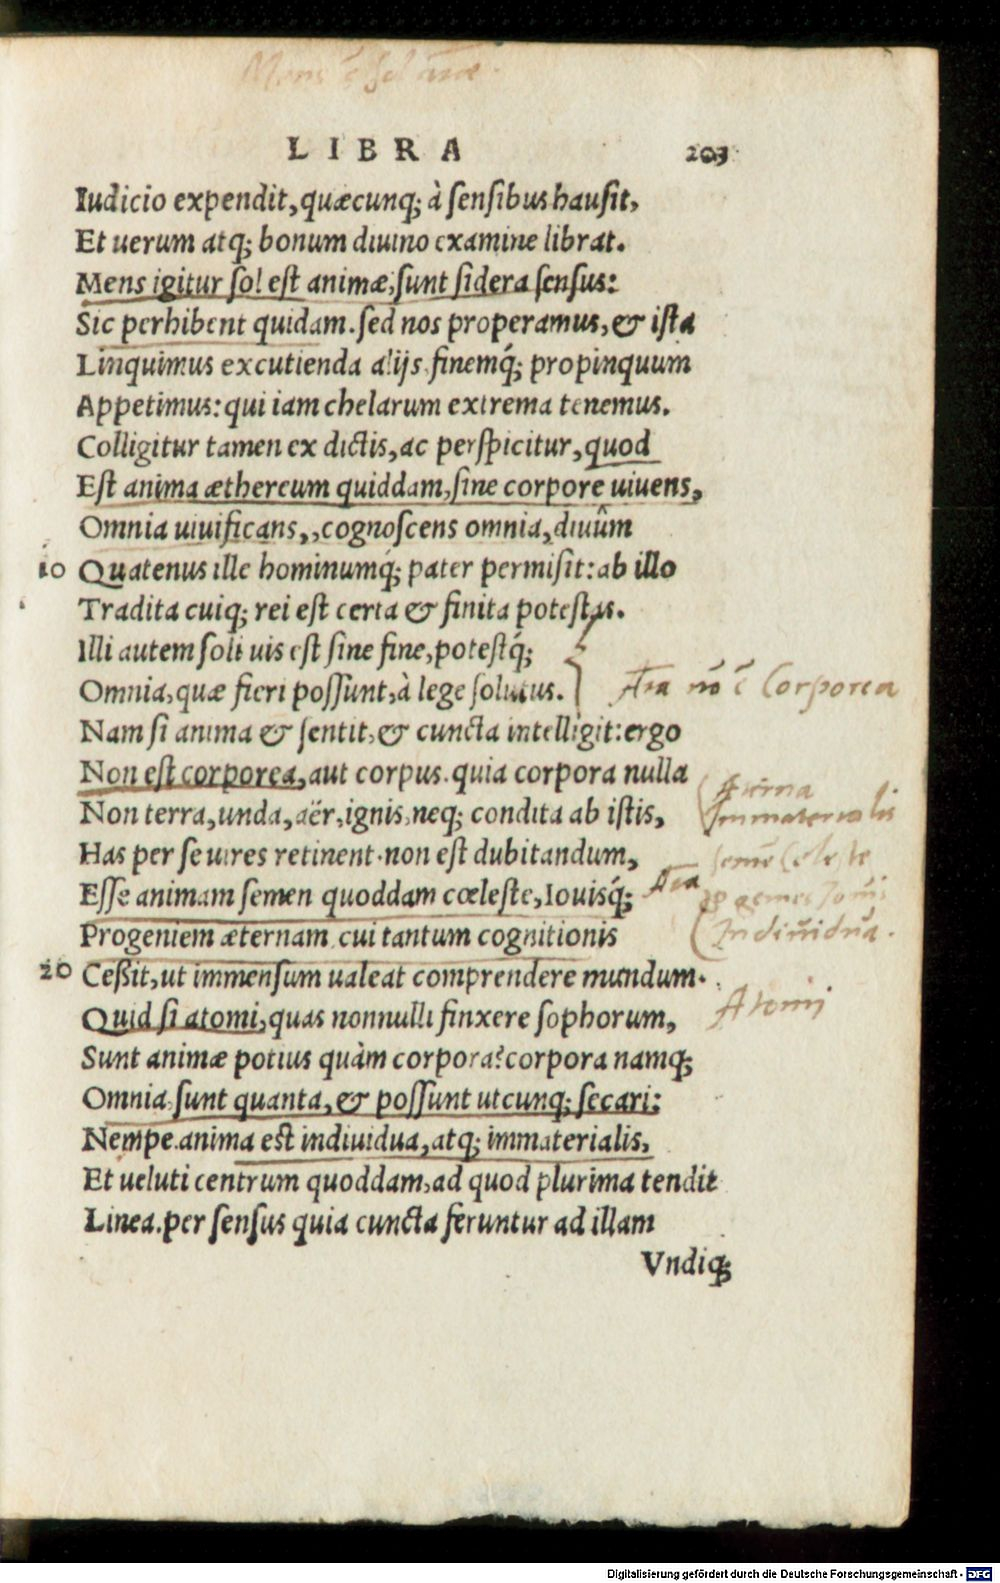 Mens ē sol aīae.
LIBRA 203
Iudicio expendit, quæcunq; à sensibus hausit,
Et uerum atq; bonum diuino examine librat.
Mens igitur sol est animæ, sunt sidera sensus:
Sic perhibent quidam. sed nos properamus, & ista
Linquimus excutienda alijs. finemq́; propinquum
Appetimus: qui iam chelarum extrema tenemus.
Colligitur tamen ex dictis, ac perspicitur, quod
Est anima æthereum quiddam, sine corpore uiuens,
Omnia uiuificans,, cognoscens omnia, diuûm
10 Quatenus ille hominumq́; pater permisit: ab illo
Tradita cuiq; rei est certa & finita potestas.
Illi autem soli uis est sine fine, potestq́;
Omnia, quæ fieri possunt, à lege solutus.
Aīa nō ē Corporea
Nam si anima & sentit, & cuncta intelligit: ergo
Non est corporea, aut corpus. quia corpora nulla
Non terra, unda, aër, ignis, neq; condita ab istis,
Anima
Immaterialis
Has per se uires retinent. non est dubitandum,
semē Celeste
Esse animam semen quoddam cœleste, Iouisq́;
Aīa
Progeniem æternam. cui tantum cognitionis
Indiuidua.
20 Ceßit, ut immensum ualeat comprendere mundum.
Atomi
Quid si atomi, quas nonnulli finxere sophorum,
Sunt animæ potius quàm corpora? corpora namq;
Omnia sunt quanta, & possunt utcunq; secari:
Nempe anima est indiuidua, atq; immaterialis,
Et ueluti centrum quoddam, ad quod plurima tendit
Linea. per sensus quia cuncta feruntur ad illam
Vndiq;
Digitalisierung gefördert durch die Deutsche Forschungsgemeinschaft - DFG